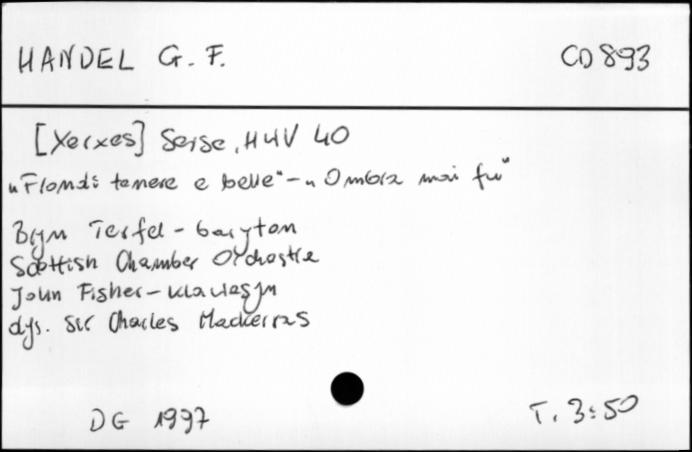 HANDEL G. F. CD 893
[Xerxes] Serse, HWV 40
„Frondi tenere e belle" – „Ombra mai fu"
Bryn Terfel – baryton
Scottish Chamber Orchestra
John Fisher – klawesyn
dyr. Sir Charles Mackerras
DG 1997 T. 3:50